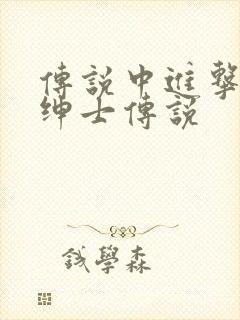 傳說中進擊
紳士傳說
錢學森